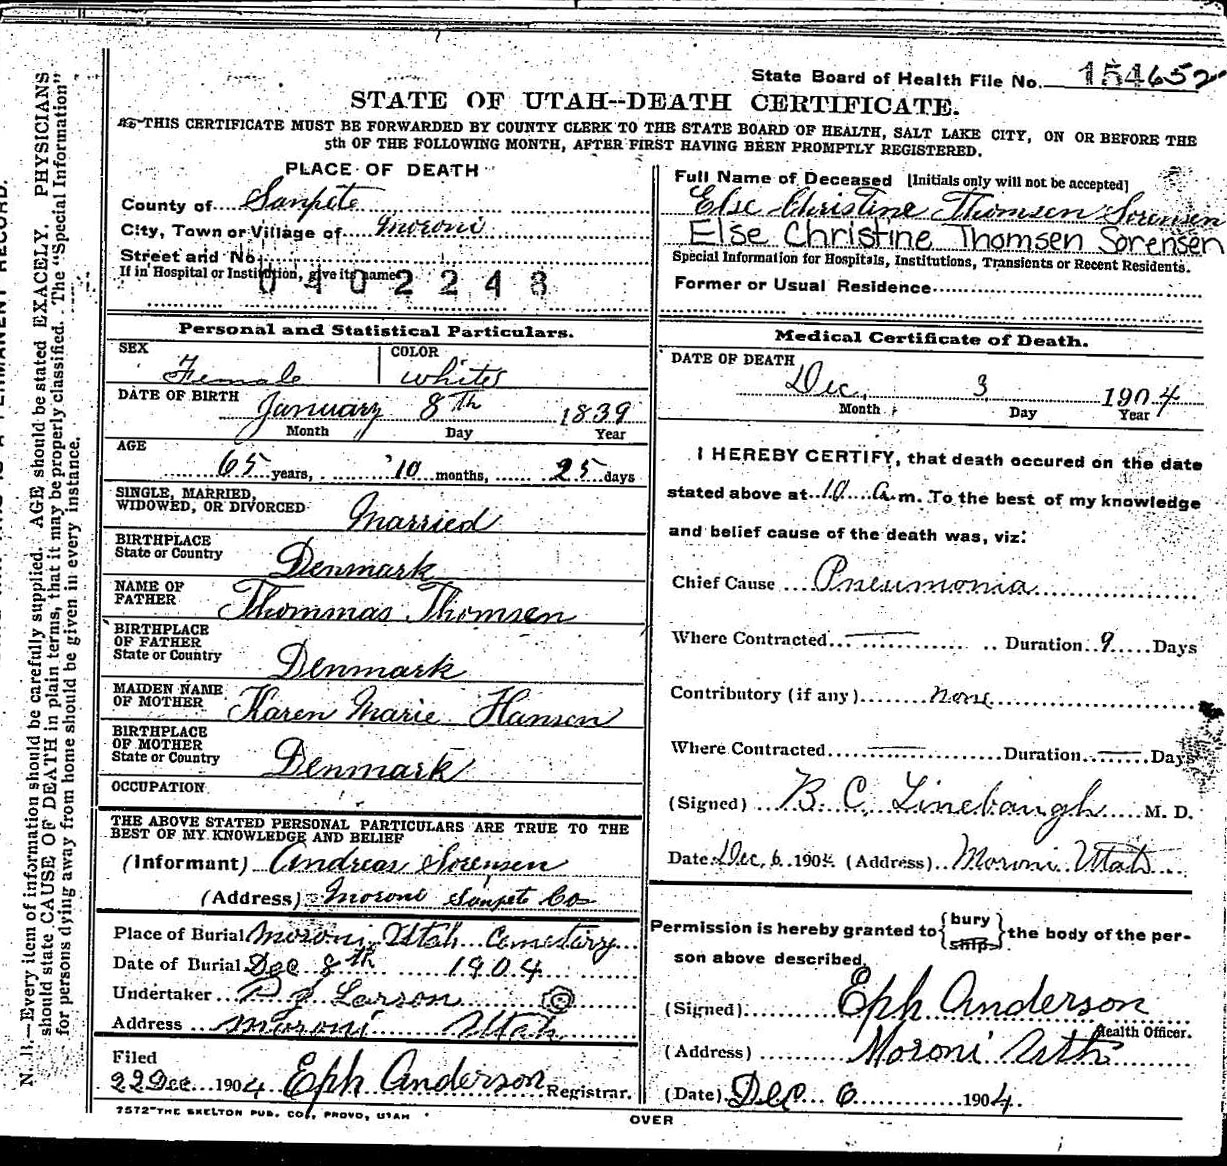 State Board of Health File No. 154652
STATE OF UTAH--DEATH CERTIFICATE.
THIS CERTIFICATE MUST BE FORWARDED BY COUNTY CLERK TO THE STATE BOARD OF HEALTH, SALT LAKE CITY, ON OR BEFORE THE
5th OF THE FOLLOWING MONTH, AFTER FIRST HAVING BEEN PROMPTLY REGISTERED.
PLACE OF DEATH
County of Sanpete
City, Town or Village of Moroni
Street and No.
If in Hospital or Institution, give its name
0402248
Full Name of Deceased [Initials only will not be accepted]
Else Christine Thomsen Sorensen
Else Christine Thomsen Sorensen
Special Information for Hospitals, Institutions, Transients or Recent Residents.
Former or Usual Residence
Personal and Statistical Particulars.
SEX COLOR
Female White
DATE OF BIRTH
January 8th 1839
Month Day Year
AGE
65 years, 10 months, 25 days
SINGLE, MARRIED,
WIDOWED, OR DIVORCED Married
BIRTHPLACE
State or Country Denmark
NAME OF
FATHER Thommas Thomsen
BIRTHPLACE
OF FATHER
State or Country Denmark
MAIDEN NAME
OF MOTHER Karen Marie Hansen
BIRTHPLACE
OF MOTHER
State or Country Denmark
OCCUPATION
THE ABOVE STATED PERSONAL PARTICULARS ARE TRUE TO THE
BEST OF MY KNOWLEDGE AND BELIEF
(Informant) Andreas Sorensen
(Address) Moroni Sanpete Co
Place of Burial Moroni Utah Cemetery
Date of Burial Dec 8th 1904
Undertaker Larson
Address Moroni Utah
Filed
22 Dec 1904 Eph Anderson Registrar.
7572-THE SKELTON PUB. CO., PROVO, UTAH
Medical Certificate of Death.
DATE OF DEATH
Dec. 3 1904
Month Day Year
I HEREBY CERTIFY, that death occured on the date
stated above at 10 a.m. To the best of my knowledge
and belief cause of the death was, viz:
Chief Cause Pneumonia
Where Contracted Duration 9 Days
Contributory (if any) none
Where Contracted Duration Days
(Signed) B. C. Linebaugh M. D.
Date Dec. 6 1904 (Address) Moroni Utah
Permission is hereby granted to {bury
ship} the body of the per-
son above described.
(Signed) Eph Anderson
Health Officer.
(Address) Moroni Utah
(Date) Dec 6 1904.
OVER
N. B.—Every item of information should be carefully supplied. AGE should be stated EXACELY. PHYSICIANS
should state CAUSE OF DEATH in plain terms, that it may be properly classified. The "Special Information"
for persons dying away from home should be given in every instance.